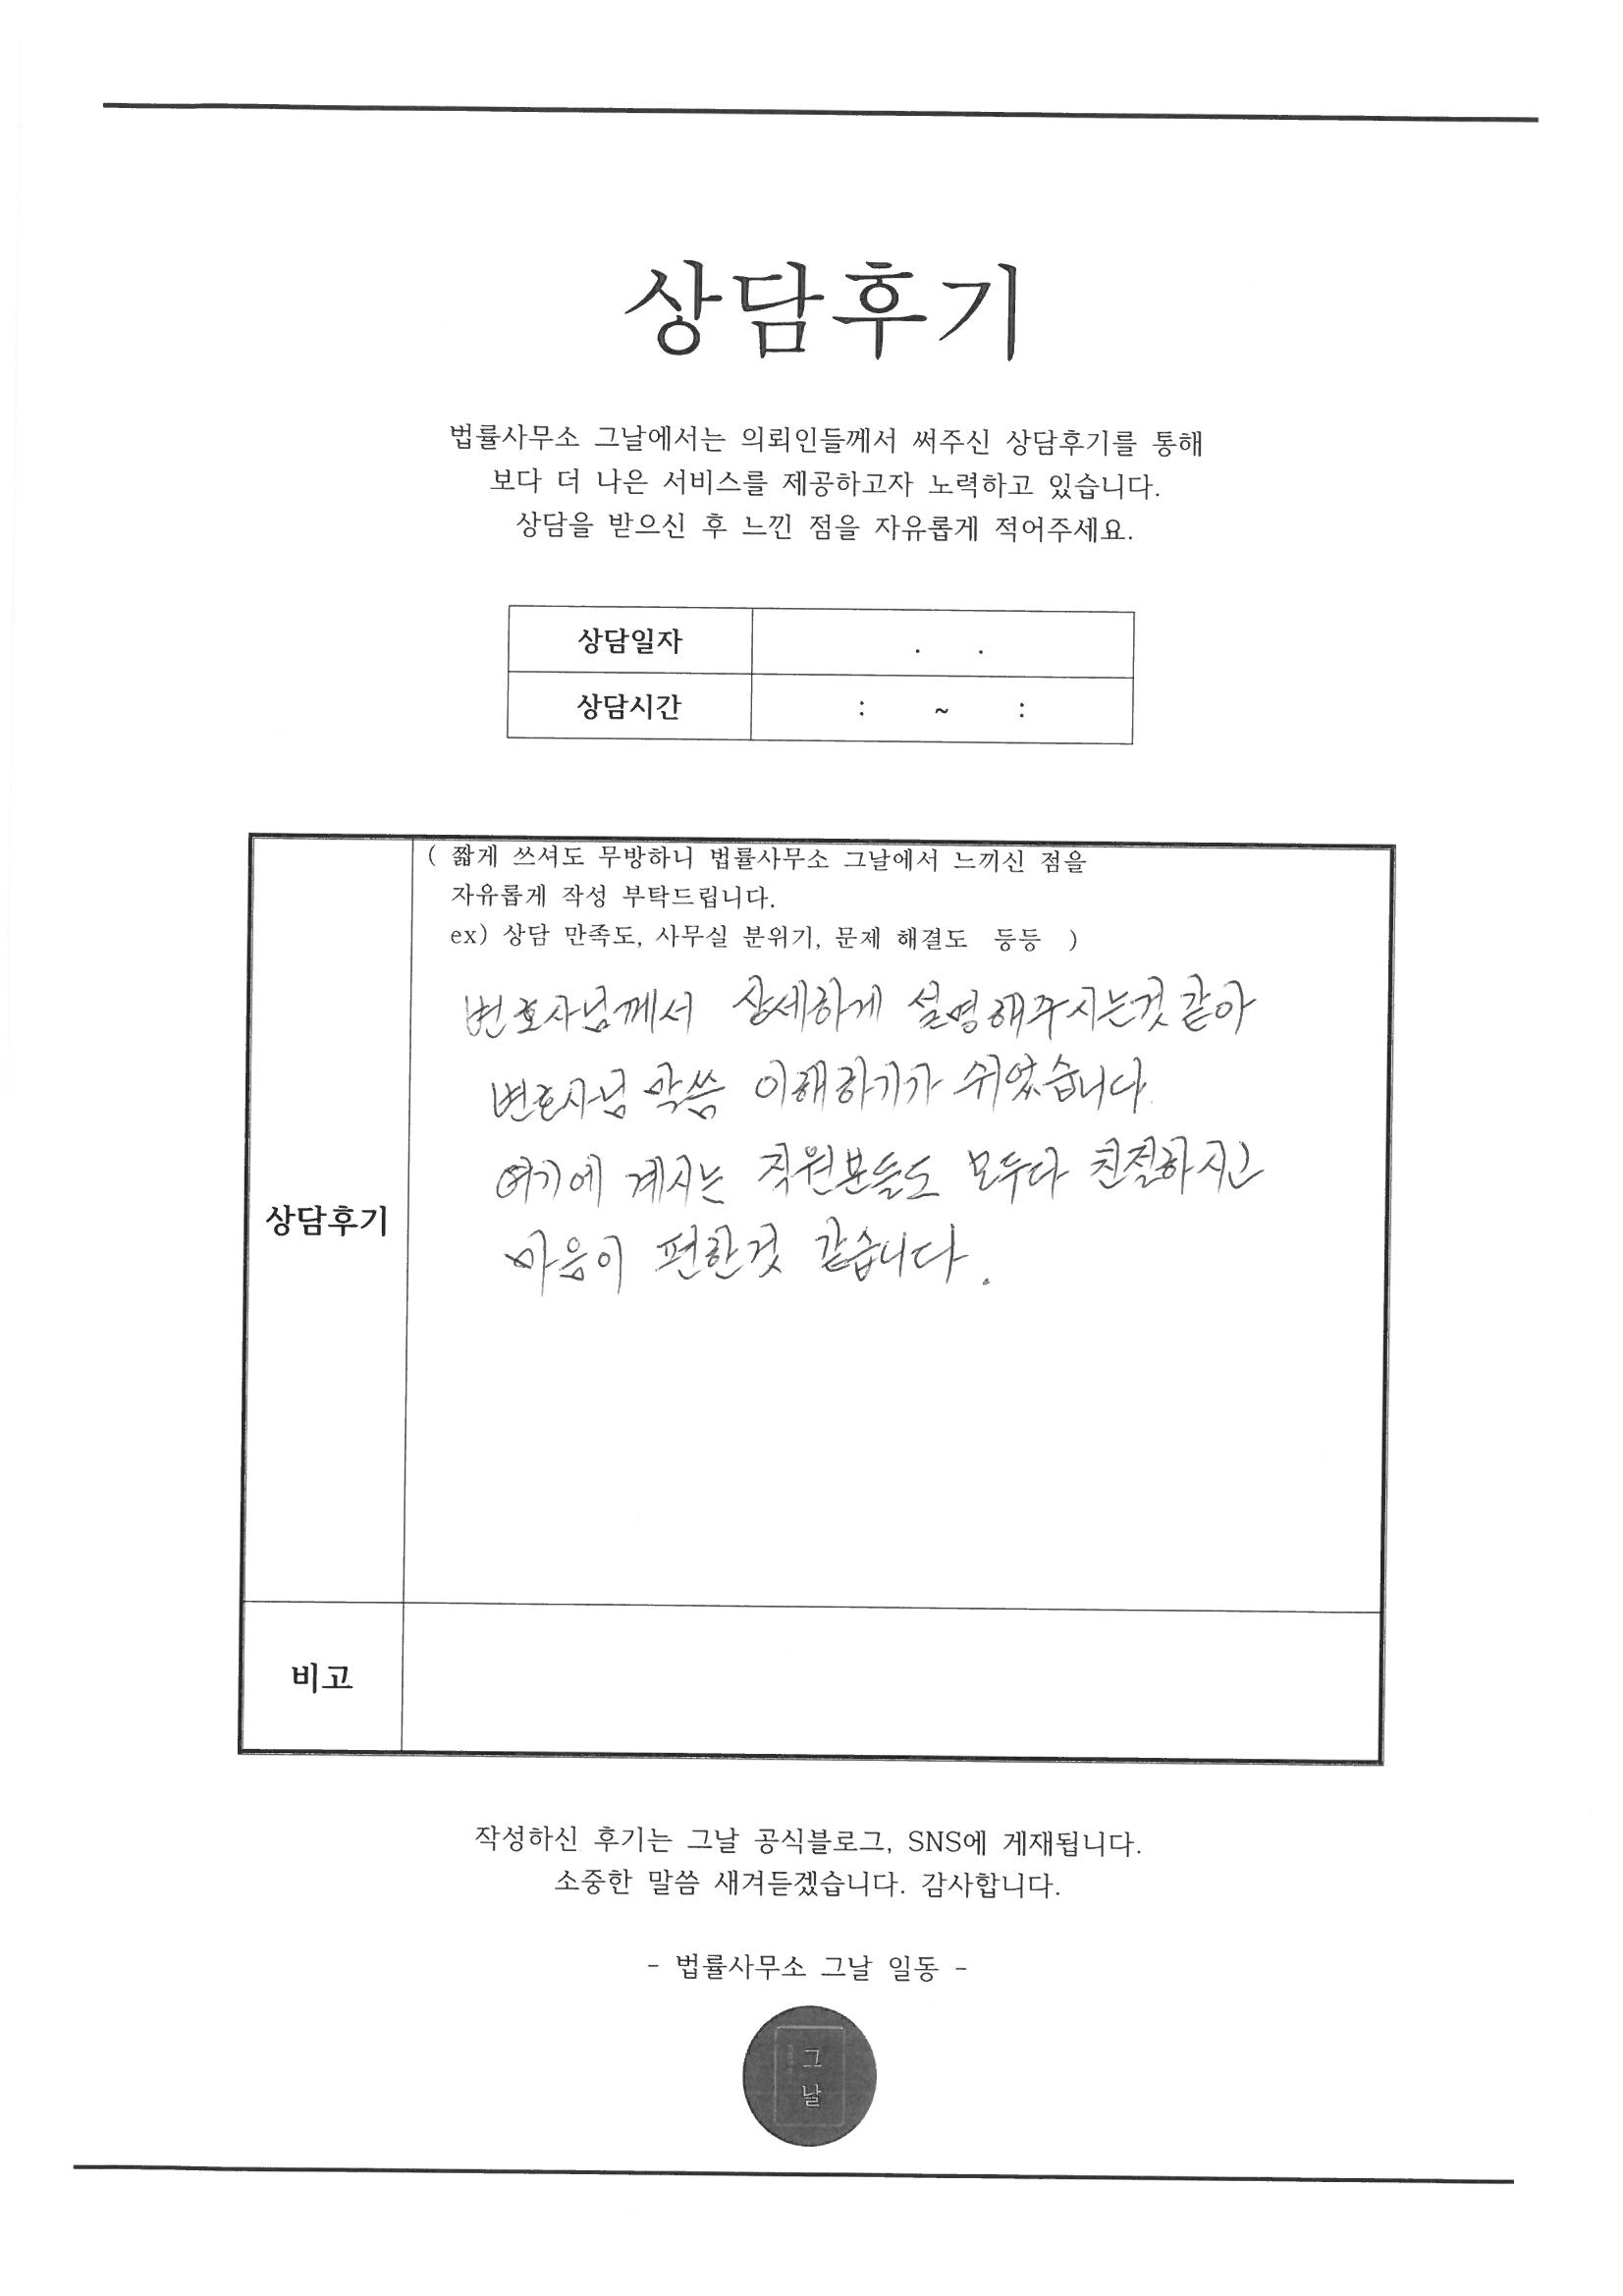 상담후기
법률사무소 그날에서는 의뢰인들께서 써주신 상담후기를 통해
보다 더 나은 서비스를 제공하고자 노력하고 있습니다.
상담을 받으신 후 느낀 점을 자유롭게 적어주세요.
상담일자 . .
상담시간 : ~ :
( 짧게 쓰셔도 무방하니 법률사무소 그날에서 느끼신 점을
자유롭게 작성 부탁드립니다.
ex) 상담 만족도, 사무실 분위기, 문제 해결도 등등 )
변호사님께서 상세하게 설명해주시는것 같아
변호사님 말씀 이해하기가 쉬었습니다.
여기에 계시는 직원분들도 모두다 친절하시고
마음이 편한것 같습니다.
상담후기
비고
작성하신 후기는 그날 공식블로그, SNS에 게재됩니다.
소중한 말씀 새겨듣겠습니다. 감사합니다.
- 법률사무소 그날 일동 -
그
날